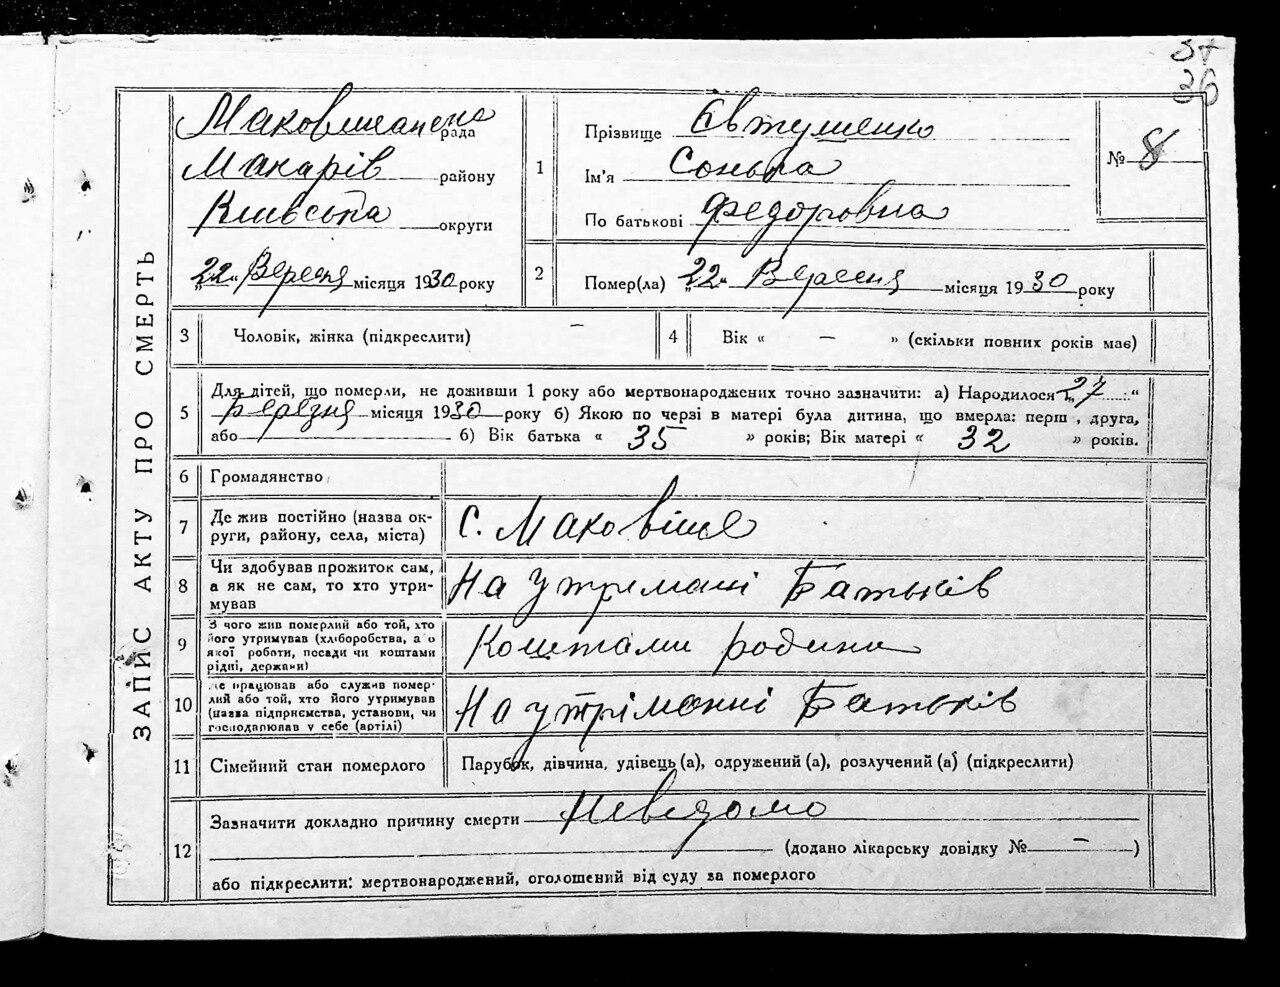 26
Маковищанська рада
Макарів району
Київська округи
„22" Вересня місяця 1930 року
1
Прізвище Євтушенко
Ім'я Сонька
По батькові Федоровна
№ 8
2
Помер(ла) „22" Вересня місяця 1930 року
3 Чоловік, жінка (підкреслити) –
4 Вік « – » (скільки повних років має)
5
Для дітей, що померли, не доживши 1 року або мертвонароджених точно зазначити: а) Народилося „27"
Березня місяця 1930 року б) Якою по черзі в матері була дитина, що вмерла: перш , друга,
або б) Вік батька « 35 » років; Вік матері « 32 » років.
6 Громадянство
7 Де жив постійно (назва ок-
руги, району, села, міста)
С. Маковіще
8 Чи здобував прожиток сам,
а як не сам, то хто утри-
мував
На утримані Батьків
9 З чого жив померлий або той, хто
його утримував (хліборобства, а о
якої роботи, посади чи коштами
рідні, держави)
Коштами родини
10 Де працював або служив помер-
лий або той, хто його утримував
(назва підприємства, установи, чи
господарював у себе (артілі)
На утріманні Батьків
11 Сімейний стан померлого
Парубок, дівчина, удівець (а), одружений (а), розлучений (а) (підкреслити)
12
Зазначити докладно причину смерти Неведомо
(додано лікарську довідку № – )
або підкреслити: мертвонароджений, оголошений від суду за померлого
ЗАПИС АКТУ ПРО СМЕРТЬ